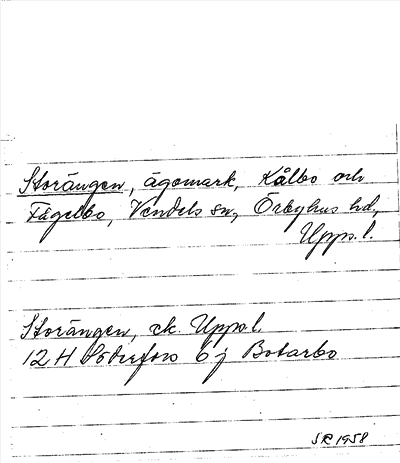 Storängen, ägomark, Kålbo och
Fågelbo, Vendels sn, Örbyhus hd,
Upps. l.
Storängen, ek. Upps l.
12 H Söderfors 6 j Botarbo
SR 1958